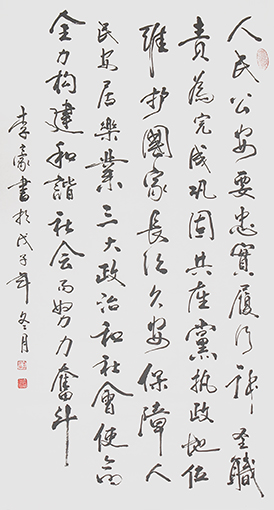 人民公安要忠實履行神圣職
責為完成巩固共產黨执政地位
維护國家長治久安保障人
民安居樂業三大政治和社會使命
全力构建和諧社会而努力奮斗
李豪書於戊子年冬月